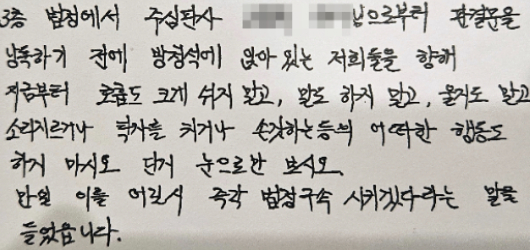 3층 법정에서 주심판사 님으로부터 판결문을
낭독하기 전에 방청석에 앉아 있는 저희들을 향해
지금부터 호흡도 크게 쉬지 말고, 말도 하지 말고, 울거도 말고
소리지르거나 탁자를 치거나 손짓하는등의 어떠한 행동도
하지 마시오 단지 눈으로만 보시오.
만일 이를 어길시 즉각 법정구속 시키겠다라는 말을
들었읍니다.